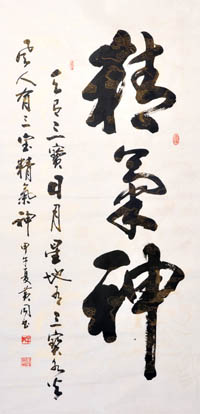 精氣神
天有三寶日月星地有三寶水火
風人有三宝精氣神 甲午夏黄